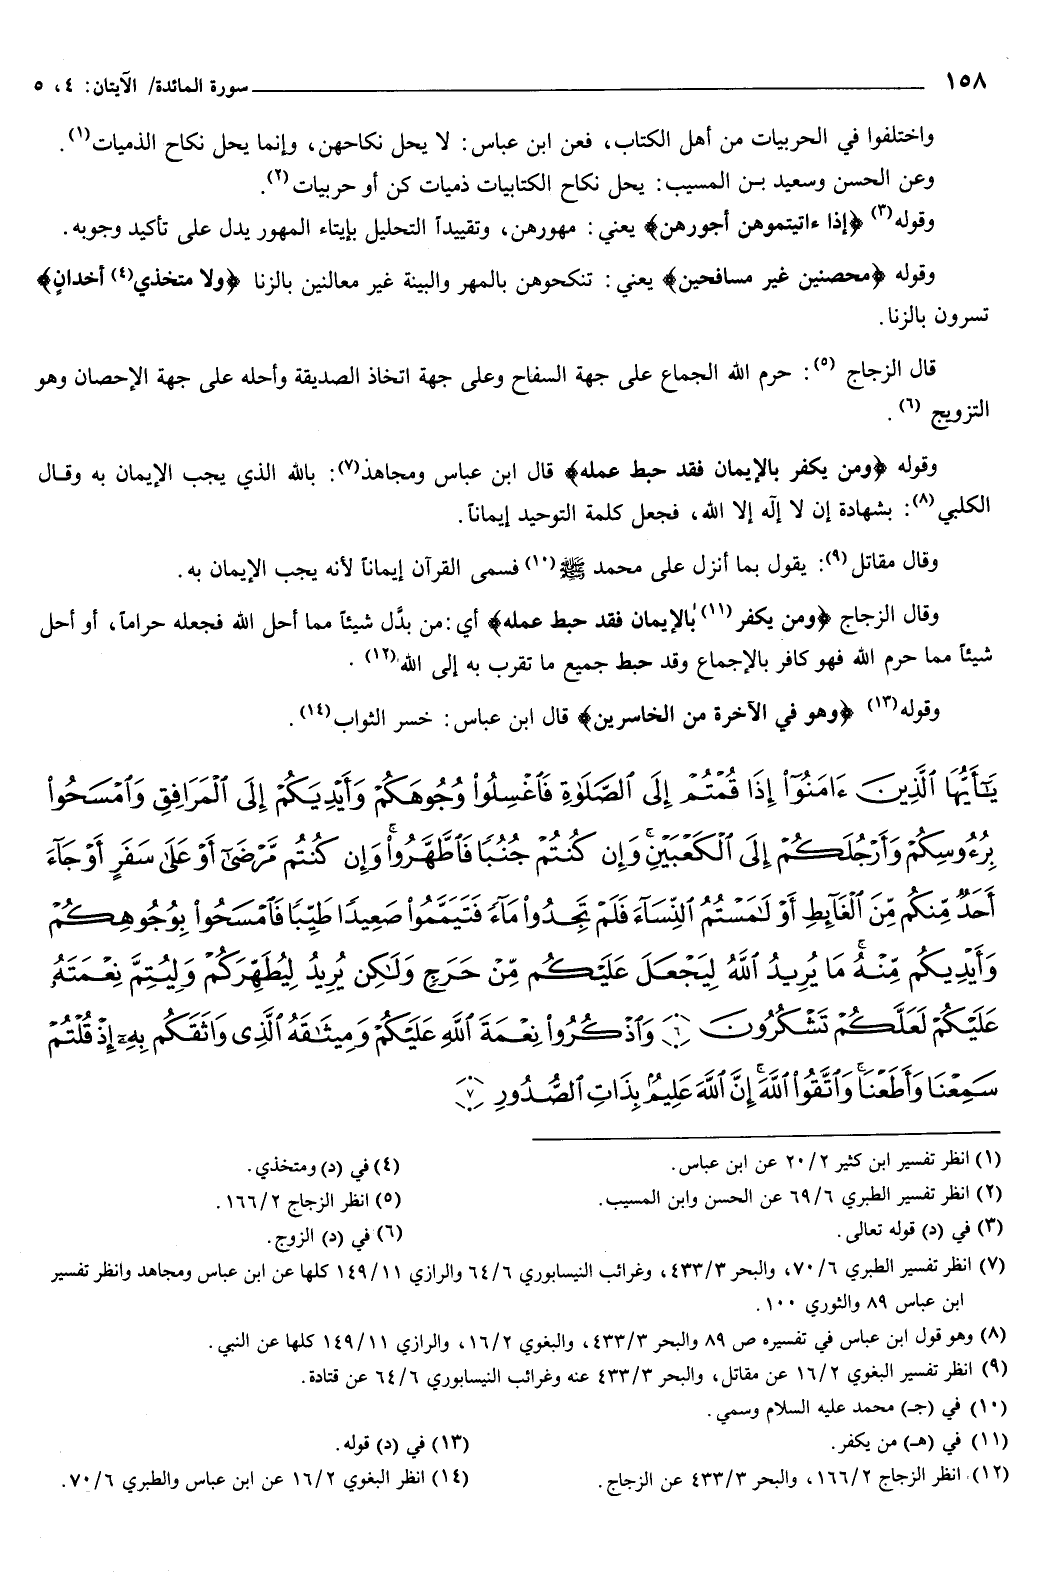 ١٥٨ سورة المائدة/ الآيتان: ٤، ٥
واختلفوا في الحربيات من أهل الكتاب، فعن ابن عباس: لا يحل نكاحهن، وإنما يحل نكاح الذميات(١).
وعن الحسن وسعيد بـن المسيب: يحل نكاح الكتابيات ذميات كن أو حربيات(٢).
وقوله(٣) ﴿إذا ءاتيتموهن أجورهن﴾ يعني: مهورهن، وتقييداً التحليل بإيتاء المهور يدل على تأكيد وجوبه.
وقوله ﴿محصنين غير مسافحين﴾ يعني: تنكحوهن بالمهر والبينة غير معالنين بالزنا ﴿ولا متخذي(٤) أخدانٍ﴾
تسرون بالزنا.
قال الزجاج (٥): حرم الله الجماع على جهة السفاح وعلى جهة اتخاذ الصديقة وأحله على جهة الإحصان وهو
التزويج (٦).
وقوله ﴿ومن يكفر بالإيمان فقد حبط عمله﴾ قال ابن عباس ومجاهذ(٧): بالله الذي يجب الإيمان به وقـال
الكلبي(٨): بشهادة إن لا إلٰه إلا الله، فجعل كلمة التوحيد إيماناً.
وقال مقاتل(٩): يقول بما أنزل على محمد ﷺ(١٠) فسمى القرآن إيماناً لأنه يجب الإيمان به.
وقال الزجاج ﴿ومن يكفر(١١) بالإيمان فقد حبط عمله﴾ أي: من بدَّل شيئاً مما أحل الله فجعله حراماً، أو أحل
شيئاً مما حرم الله فهو كافر بالإجماع وقد حبط جميع ما تقرب به إلى الله(١٢).
وقوله(١٣) ﴿وهو في الآخرة من الخاسرين﴾ قال ابن عباس: خسر الثواب(١٤).
يَٰٓأَيُّهَا ٱلَّذِينَ ءَامَنُوٓا۟ إِذَا قُمْتُمْ إِلَى ٱلصَّلَوٰةِ فَٱغْسِلُوا۟ وُجُوهَكُمْ وَأَيْدِيَكُمْ إِلَى ٱلْمَرَافِقِ وَٱمْسَحُوا۟
بِرُءُوسِكُمْ وَأَرْجُلَكُمْ إِلَى ٱلْكَعْبَيْنِ ۚ وَإِن كُنتُمْ جُنُبًا فَٱطَّهَّرُوا۟ ۚ وَإِن كُنتُم مَّرْضَىٰٓ أَوْ عَلَىٰ سَفَرٍ أَوْ جَآءَ
أَحَدٌ مِّنكُم مِّنَ ٱلْغَآئِطِ أَوْ لَٰمَسْتُمُ ٱلنِّسَآءَ فَلَمْ تَجِدُوا۟ مَآءً فَتَيَمَّمُوا۟ صَعِيدًا طَيِّبًا فَٱمْسَحُوا۟ بِوُجُوهِكُمْ
وَأَيْدِيكُم مِّنْهُ ۚ مَا يُرِيدُ ٱللَّهُ لِيَجْعَلَ عَلَيْكُم مِّنْ حَرَجٍ وَلَٰكِن يُرِيدُ لِيُطَهِّرَكُمْ وَلِيُتِمَّ نِعْمَتَهُۥ
عَلَيْكُمْ لَعَلَّكُمْ تَشْكُرُونَ ٦ وَٱذْكُرُوا۟ نِعْمَةَ ٱللَّهِ عَلَيْكُمْ وَمِيثَٰقَهُ ٱلَّذِى وَاثَقَكُم بِهِۦٓ إِذْ قُلْتُمْ
سَمِعْنَا وَأَطَعْنَا ۖ وَٱتَّقُوا۟ ٱللَّهَ ۚ إِنَّ ٱللَّهَ عَلِيمٌۢ بِذَاتِ ٱلصُّدُورِ ٧
(١) انظر تفسير ابن كثير ٢/ ٢٠ عن ابن عباس. (٤) في (د) ومتخذي.
(٢) انظر تفسير الطبري ٦/ ٦٩ عن الحسن وابن المسيب. (٥) انظر الزجاج ٢/ ١٦٦.
(٣) في (د) قوله تعالى. (٦) في (د) الزوج.
(٧) انظر تفسير الطبري ٦/ ٧٠، والبحر ٣/ ٤٣٣، وغرائب النيسابوري ٦/ ٦٤ والرازي ١١/ ١٤٩ كلها عن ابن عباس ومجاهد وانظر تفسير
ابن عباس ٨٩ والثوري ١٠٠.
(٨) وهو قول ابن عباس في تفسيره ص ٨٩ والبحر ٣/ ٤٣٣، والبغوي ٢/ ١٦، والرازي ١١/ ١٤٩ كلها عن النبي.
(٩) انظر تفسير البغوي ٢/ ١٦ عن مقاتل، والبحر ٣/ ٤٣٣ عنه وغرائب النيسابوري ٦/ ٦٤ عن قتادة.
(١٠) في (جـ) محمد عليه السلام وسمي.
(١١) في (هـ) من يكفر. (١٣) في (د) قوله.
(١٢) انظر الزجاج ٢/ ١٦٦، والبحر ٣/ ٤٣٣ عن الزجاج. (١٤) انظر البغوي ٢/ ١٦ عن ابن عباس والطبري ٦/ ٧٠.